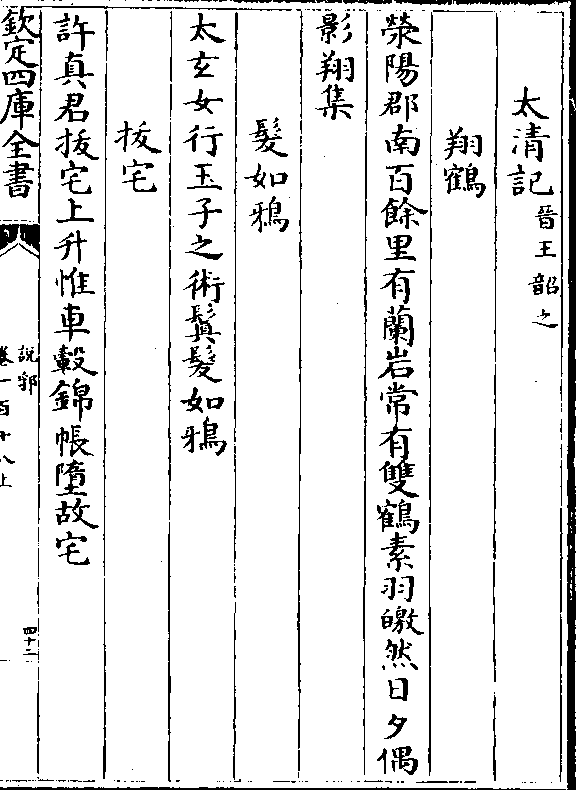 太清記晉王韶之
翔鶴
滎陽郡南百餘里有蘭岩常有雙鶴素羽皦然日夕偶
影翔集
髮如鴉
太玄女行玉子之術鬒髮如鴉
拔宅
許真君拔宅上升惟車轂錦帳墮故宅
欽定四庫全書
說郛
卷一百十八上
四十二